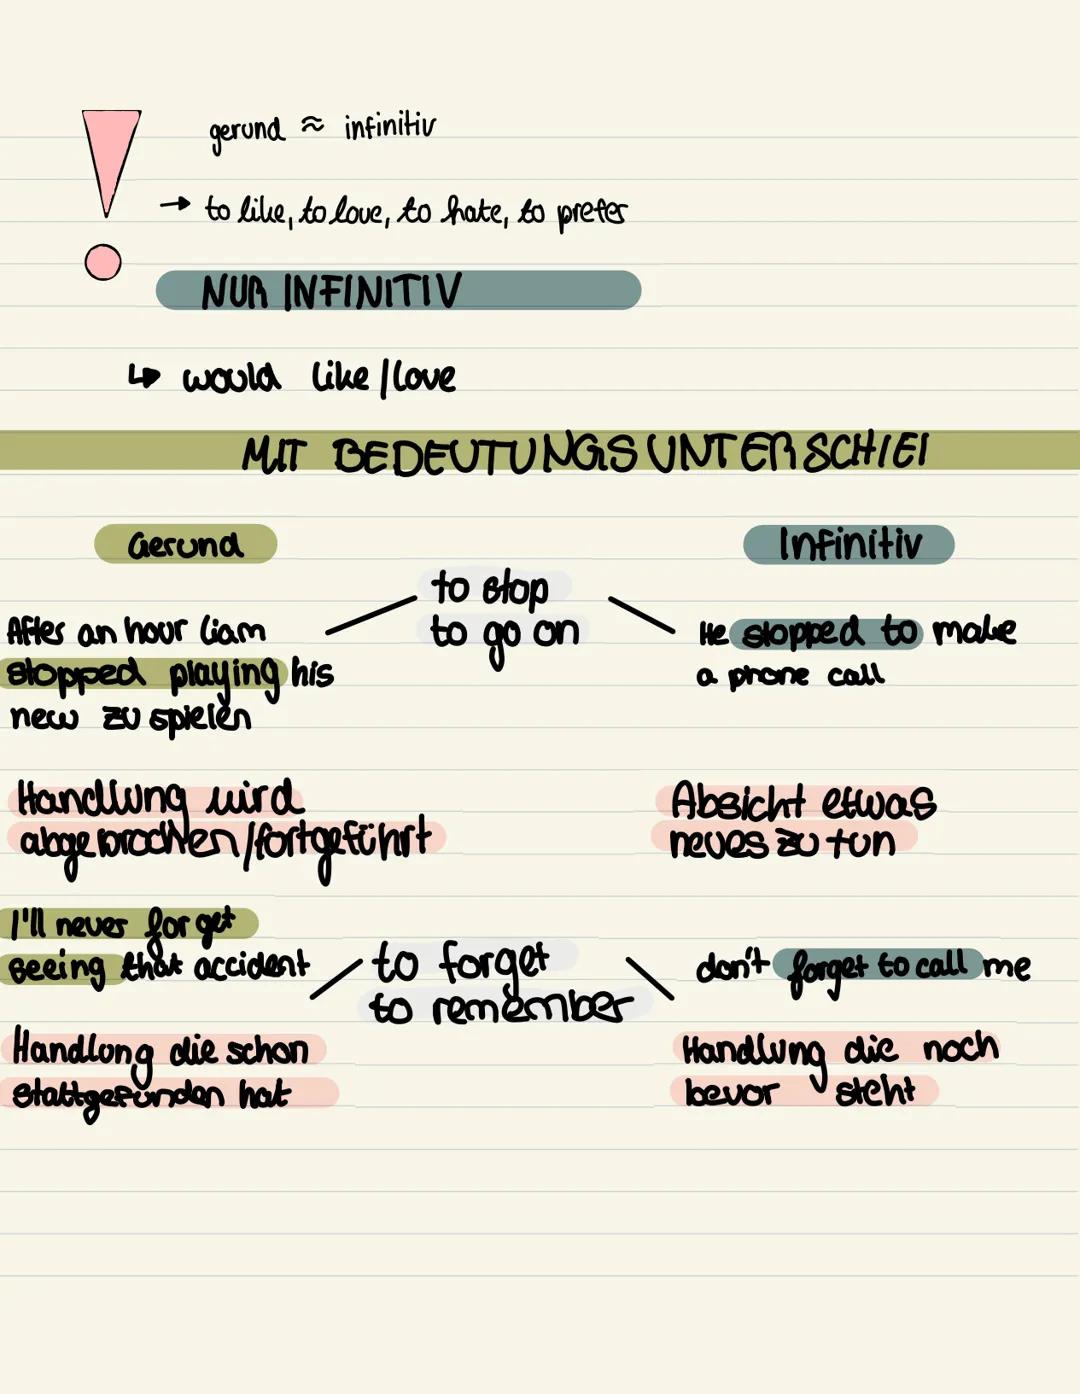 gerund ≈ infinitiv
→ to like, to love, to hate, to prefer
NUR INFINITIV
↳ would like/love
MIT BEDEUTUNGSUNTERSCHIEI
Gerund
Infinitiv
to stop
to go on
After an hour Liam
stopped playing his
new zu spielen
He stopped to make
a phone call
Handlung wird
abgebrochen/fortgeführt
Absicht etwas
neues zu tun
I'll never forget
seeing that accident
to forget
to remember
don't forget to call me
Handlung die schon
stattgefunden hat
Handlung die noch
bevor steht